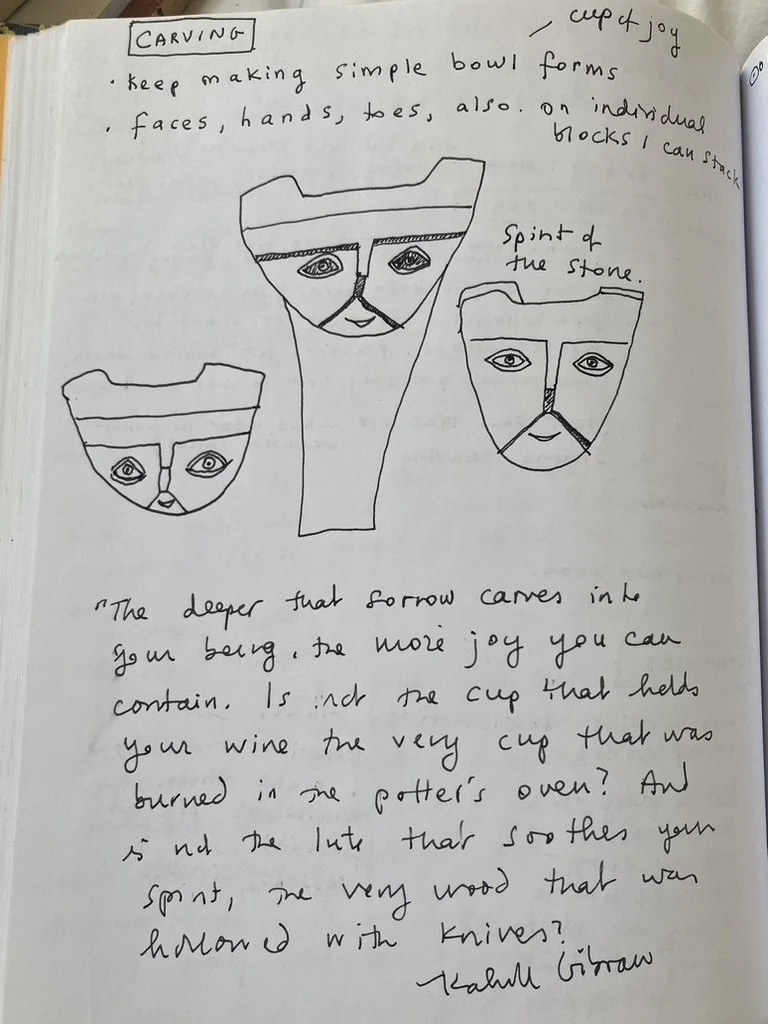 CARVING
cup of joy
• Keep making simple bowl forms
• faces, hands, toes, also. on individual
blocks I can stack
Spirit of
the stone.
"The deeper that sorrow carves into
your being, the more joy you can
contain. Is not the cup that holds
your wine the very cup that was
burned in the potter's oven? And
is not the lute that soothes your
spirit, the very wood that was
hollowed with knives?
Kahlil Gibran